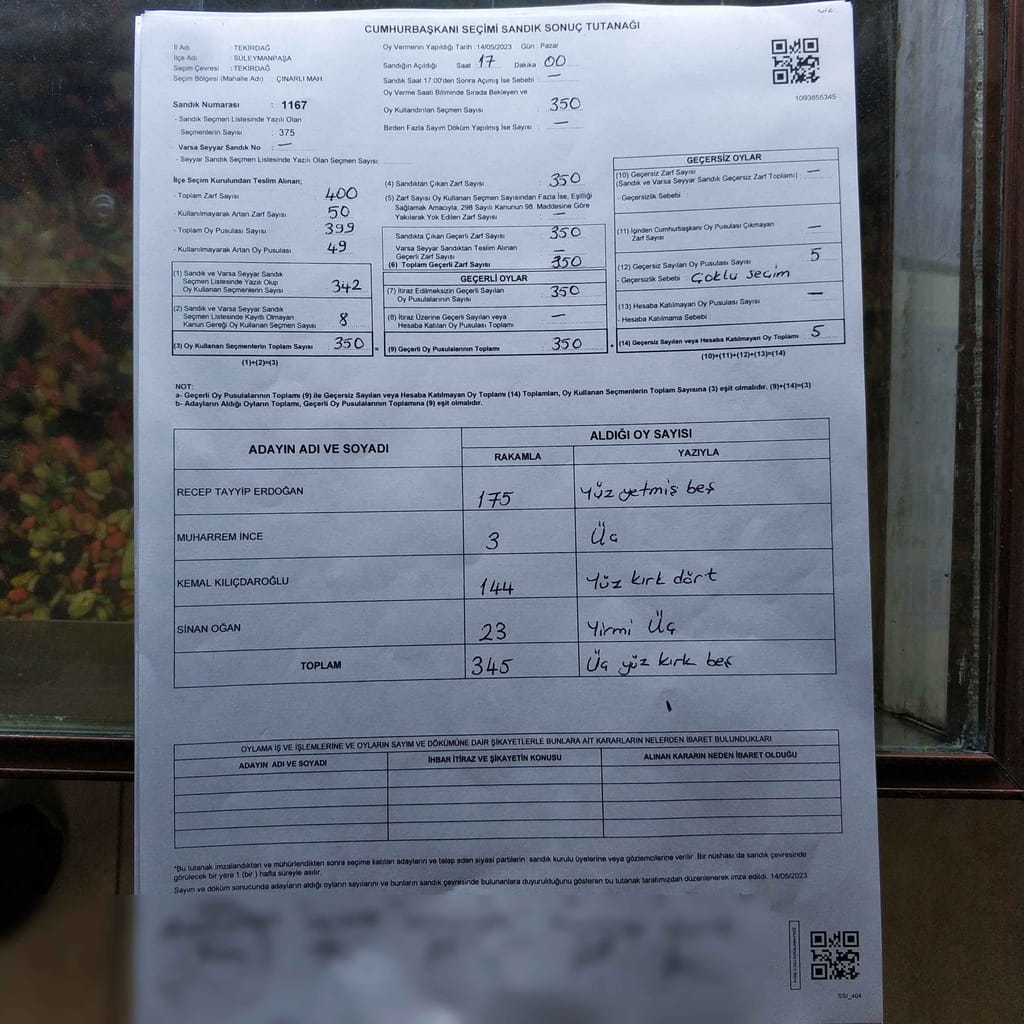 CUMHURBAŞKANI SEÇİMİ SANDIK SONUÇ TUTANAĞI
İl Adı : TEKİRDAĞ
İlçe Adı : SÜLEYMANPAŞA
Seçim Çevresi : TEKİRDAĞ
Seçim Bölgesi (Mahalle Adı) : ÇINARLI MAH.
Oy Vermenin Yapıldığı Tarih : 14/05/2023 Gün : Pazar
Sandığın Açıldığı Saat 17 Dakika 00
Sandık Saat 17:00'den Sonra Açımış İse Sebebi : —
Oy Verme Saati Bitiminde Sırada Bekleyen ve
Oy Kullandırılan Seçmen Sayısı : 350
Birden Fazla Sayım Döküm Yapılmış İse Sayısı : —
1093855345
Sandık Numarası : 1167
- Sandık Seçmen Listesinde Yazılı Olan
Seçmenlerin Sayısı : 375
Varsa Seyyar Sandık No : —
- Seyyar Sandık Seçmen Listesinde Yazılı Olan Seçmen Sayısı:
İlçe Seçim Kurulundan Teslim Alınan;
- Toplam Zarf Sayısı : 400
- Kullanılmayarak Artan Zarf Sayısı : 50
- Toplam Oy Pusulası Sayısı : 399
- Kullanılmayarak Artan Oy Pusulası : 49
(1) Sandık ve Varsa Seyyar Sandık
Seçmen Listesinde Yazılı Olup
Oy Kullanan Seçmenlerin Sayısı : 342
(2) Sandık ve Varsa Seyyar Sandık
Seçmen Listesinde Kayıtlı Olmayan
Kanun Gereği Oy Kullanan Seçmen Sayısı : 8
(3) Oy Kullanan Seçmenlerin Toplam Sayısı : 350 =
(1)+(2)=(3)
(4) Sandıktan Çıkan Zarf Sayısı : 350
(5) Zarf Sayısı Oy Kullanan Seçmen Sayısından Fazla İse, Eşitliği
Sağlamak Amacıyla, 298 Sayılı Kanunun 98. Maddesine Göre
Yakılarak Yok Edilen Zarf Sayısı : —
Sandıkta Çıkan Geçerli Zarf Sayısı : 350
Varsa Seyyar Sandıktan Teslim Alınan
Geçerli Zarf Sayısı : —
(6) Toplam Geçerli Zarf Sayısı : 350
GEÇERLİ OYLAR
(7) İtiraz Edilmeksizin Geçerli Sayılan
Oy Pusulalarının Sayısı : 350
(8) İtiraz Üzerine Geçerli Sayılan veya
Hesaba Katılan Oy Pusulası Toplamı : —
(9) Geçerli Oy Pusulalarının Toplamı : 350 +
GEÇERSİZ OYLAR
(10) Geçersiz Zarf Sayısı
(Sandık ve Varsa Seyyar Sandık Geçersiz Zarf Toplamı) : —
- Geçersizlik Sebebi :
(11) İçinden Cumhurbaşkanı Oy Pusulası Çıkmayan
Zarf Sayısı : —
(12) Geçersiz Sayılan Oy Pusulası Sayısı : 5
- Geçersizlik Sebebi : Çoklu seçim
(13) Hesaba Katılmayan Oy Pusulası Sayısı : —
- Hesaba Katılmama Sebebi :
(14) Geçersiz Sayılan veya Hesaba Katılmayan Oy Toplamı : 5
(10)+(11)+(12)+(13)=(14)
NOT:
a- Geçerli Oy Pusulalarının Toplamı (9) ile Geçersiz Sayılan veya Hesaba Katılmayan Oy Toplamı (14) Toplamları, Oy Kullanan Seçmenlerin Toplam Sayısına (3) eşit olmalıdır. (9)+(14)=(3)
b- Adayların Aldığı Oyların Toplamı, Geçerli Oy Pusulalarının Toplamına (9) eşit olmalıdır.
ADAYIN ADI VE SOYADI
ALDIĞI OY SAYISI
RAKAMLA YAZIYLA
RECEP TAYYİP ERDOĞAN 175 Yüz yetmiş beş
MUHARREM İNCE 3 Üç
KEMAL KILIÇDAROĞLU 144 Yüz kırk dört
SİNAN OĞAN 23 Yirmi Üç
TOPLAM 345 Üç yüz kırk beş
OYLAMA İŞ VE İŞLEMLERİNE VE OYLARIN SAYIM VE DÖKÜMÜNE DAİR ŞİKAYETLERLE BUNLARA AİT KARARLARIN NELERDEN İBARET BULUNDUKLARI
ADAYIN ADI VE SOYADI İHBAR İTİRAZ VE ŞİKAYETİN KONUSU ALINAN KARARIN NEDEN İBARET OLDUĞU
*Bu tutanak imzalandıktan ve mühürlendikten sonra seçime katılan adayların ve talep eden siyasi partilerin sandık kurulu üyelerine veya gözlemcilerine verilir. Bir nüshası da sandık çevresinde
görülecek bir yere 1 (bir) hafta süreyle asılır.
Sayım ve döküm sonucunda adayların aldığı oyların sayılarını ve bunların sandık çevresinde bulunanlara duyurulduğunu gösteren bu tutanak tarafımızdan düzenlenerek imza edildi. 14/05/2023
SSI_404